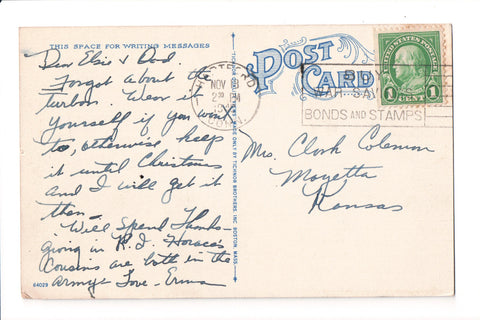 THIS SPACE FOR WRITING MESSAGES
Dear Elsie & Dad.
Forgot about the
turban. Wear it
yourself if you want
to, otherwise keep
it until Christmas
and I will get it
then -
Will Spend Thanks-
giving in R.I. Horace's
Cousins are both in the
army. Love - Erma
64029
BY TICHNOR BROTHERS, INC. BOSTON, MASS.
POST
CARD
HARTFORD
NOV
PM
CONN.
WAR SAV
BONDS AND STAMPS
UNITED STATES POSTAGE
1 CENT 1
Mrs. Clark Coleman
Mayetta
Kansas